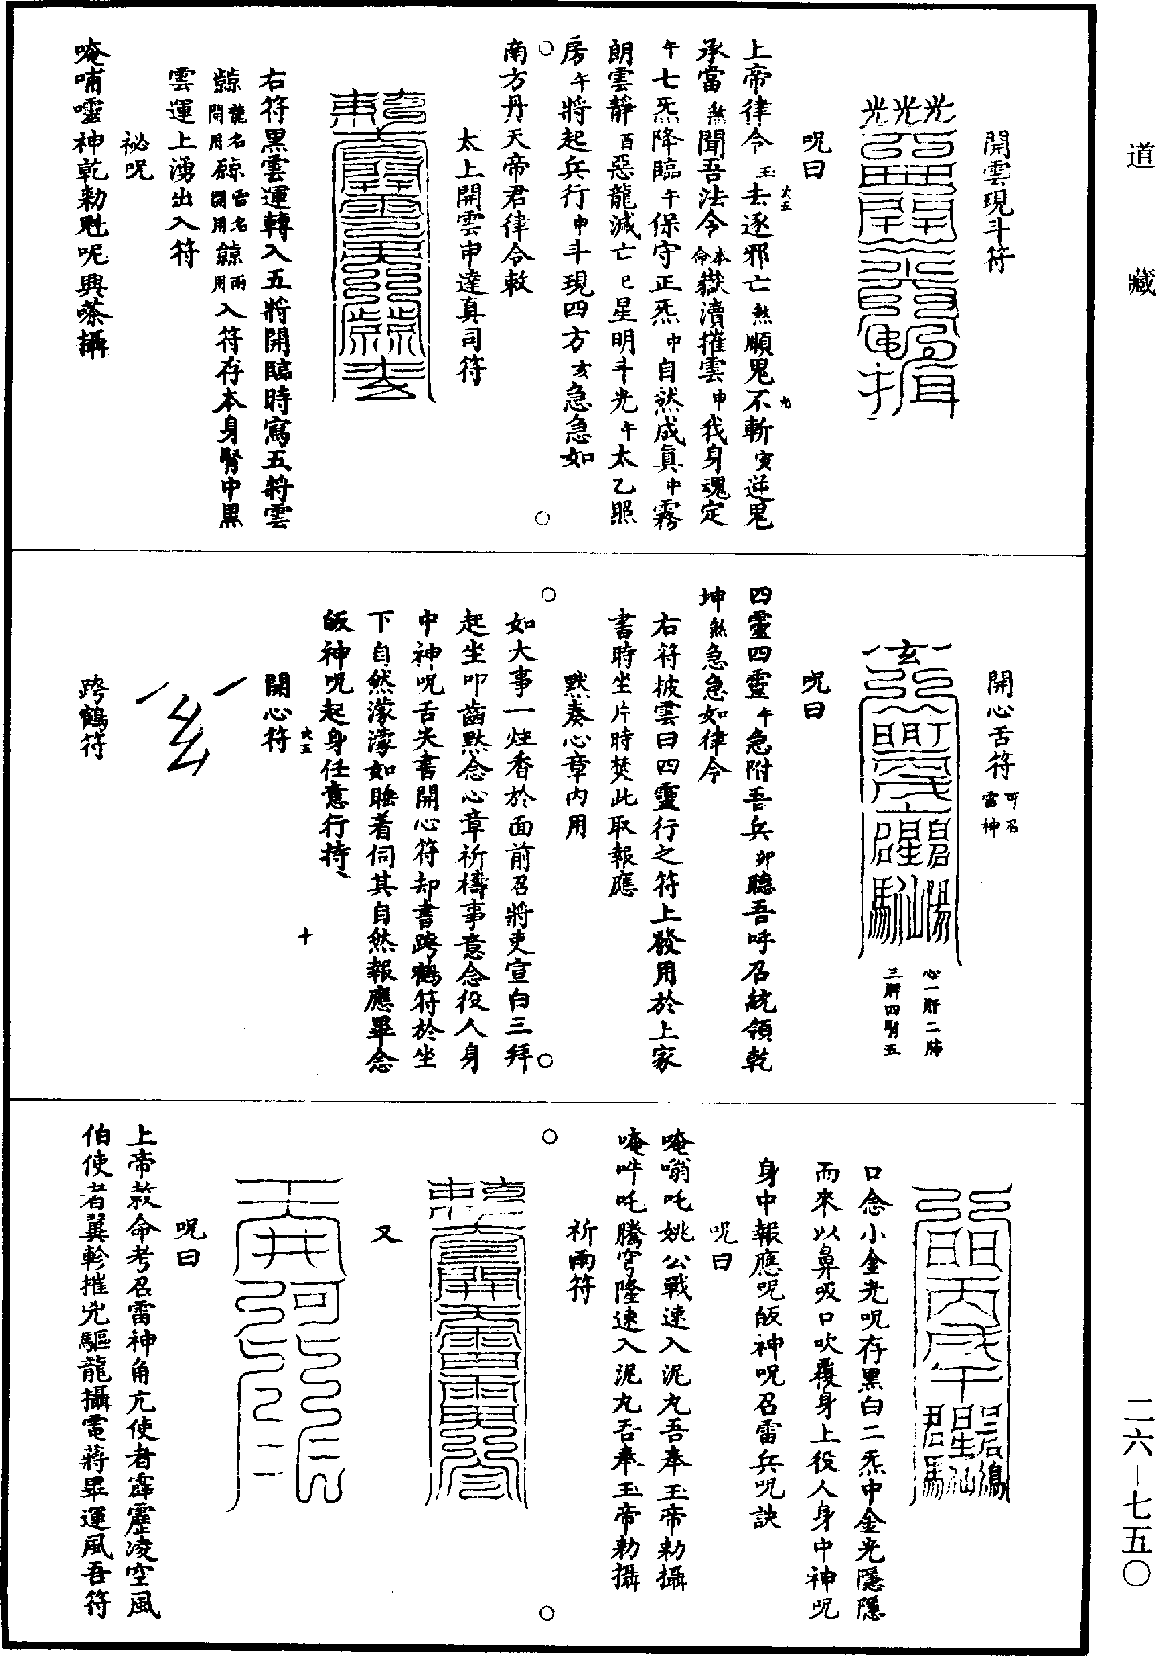 道藏
開雲現斗符
呪曰
上帝律令玉去逐邪亡煞順鬼不斬寅逆鬼
承當煞聞吾法令本命嶽瀆摧雲申我身魂定
午七炁降臨午保守正炁中自然成真中霧
朗雲靜酉惡龍滅亡巳星明斗光午太乙照
房午將起兵行申斗現四方亥急急如
南方丹天帝君律令敕
太上開雲申達真司符
右符黑雲運轉入五將開臨時寫五將雲
入符存本身腎中黑
雲運上湧出入符
祕呪
唵哺囉神乾勅魁呪興嗏攝
開心舌符可召雷神
心一肝二肺
三脾四腎五
呪曰
四靈四靈午急附吾兵卯聽吾呼召統領乾
坤煞急急如律令
右符披雲曰四靈行之符上發用於上家
書時坐片時焚此取報應
默奏心章內用
如大事一炷香於面前召將吏宣白三拜
起坐叩齒默念心章祈禱事意念役人身
中神呪舌尖書開心符却書跨鶴符於坐
下自然濛濛如睡着伺其自然報應畢念
皈神呪起身任意行持
開心符
跨鶴符
口念小金光呪存黑白二炁中金光隱隱
而來以鼻吸口吹覆身上役人身中神呪
身中報應呪皈神呪召雷兵呪訣
呪曰
唵嗡吒姚公戰速入泥丸吾奉玉帝勅攝
唵吽吒騰穹隆速入泥丸吾奉玉帝勅攝
祈雨符
又
呪曰
上帝赦命考召雷神角亢使者霹靂凌空風
伯使者翼軫摧兇驅龍攝電蔣畢運風吾符
二六—七五〇